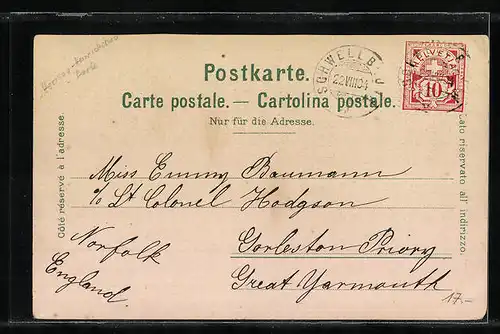 Postkarte.
Carte postale. — Cartolina postale.
Nur für die Adresse.
Côté réservé à l'adresse.
lato riservato all' indirizzo.
SCHWELLB
22 VIII 04
HELVETIA
10
Miss Emmy Baumann
c/o Lt Colonel Hodgson
Gorleston Priory
Great Yarmouth
Norfolk
England.
17.-